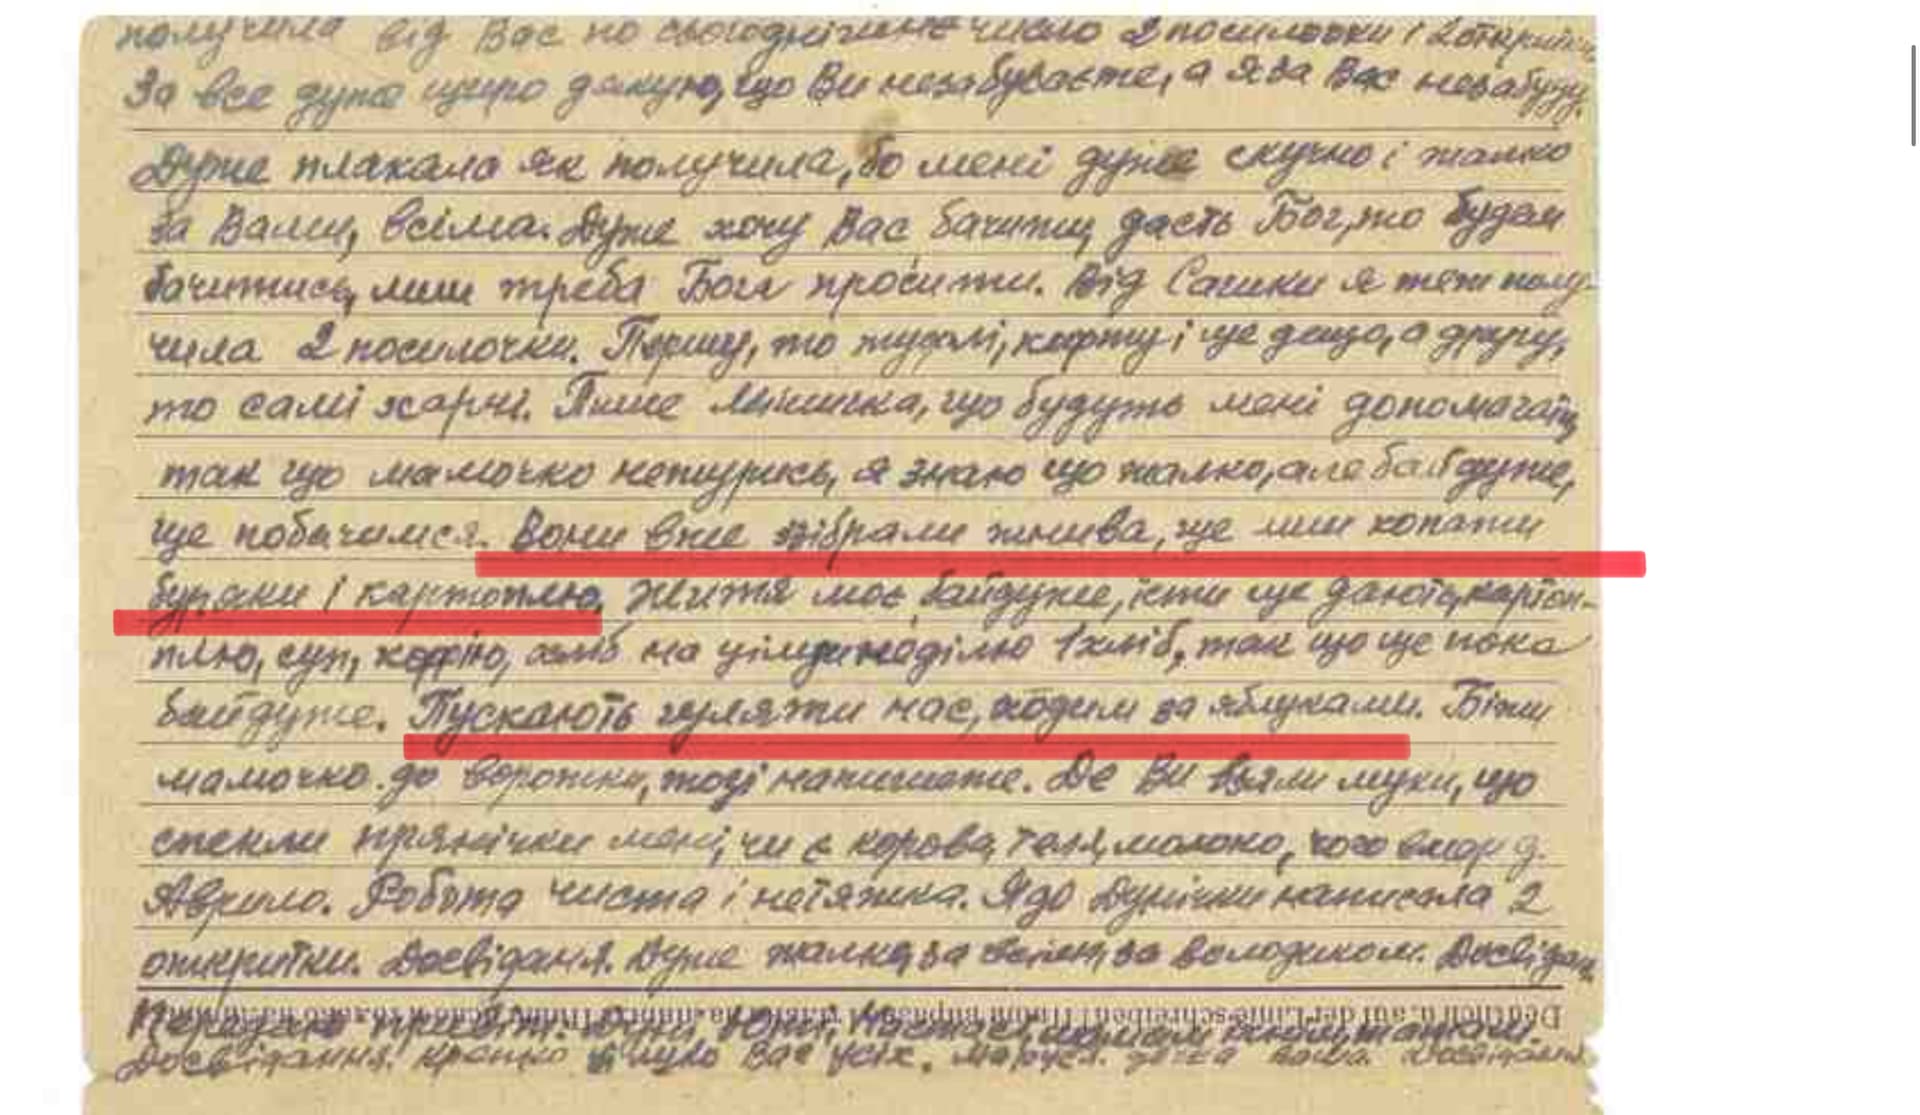 получила від Вас по сьогоднішнє число 2 посилочки і 2 открити
За все дуже щиро дякую, що Ви незабуваєте, а я за Вас незабуду.
Дуже плакала як получила, бо мені дуже скучно і жалко
за Вами, всіма. Дуже хочу Вас бачити, дасть Бог, то будем
бачитись, лиш треба Бога просити. Від Сашки я теж полу-
чила 2 посилочки. Першу, то туфлі, кофту і ще дещо, а другу,
то самі харчі. Пише що будуть мені допомагати,
так що мамочко нежурись, я знаю що жалко, але байдуже,
ще побачимся. Вони вже зібрали жнива, ще лиш копати
буряки і картоплю. Життя моє байдуже, їсти ще дають, картоп-
плю, суп, кофію, хліб на цілу неділю 1 хліб, так що ще пока
байдуже. Пускають гуляти нас, ходим за яблуками. Біжи
мамочко до ворожки, тоді напишете. Де Ви взяли муки, що
спекли прянічки мені, чи є корова, теля, молоко, чого вмер д.
Аврило. Робота чиста і нетяжка. Я до Дунічки написала 2
открити. Досвіданя. Дуже жалко за за Володиком. Досвідан
Передаю привіт.
Deutlich u. auf der Linie schreiben!
Досвідання. Кріпко цілую Вас усіх. Маруся. дочка ваша. Досвідання